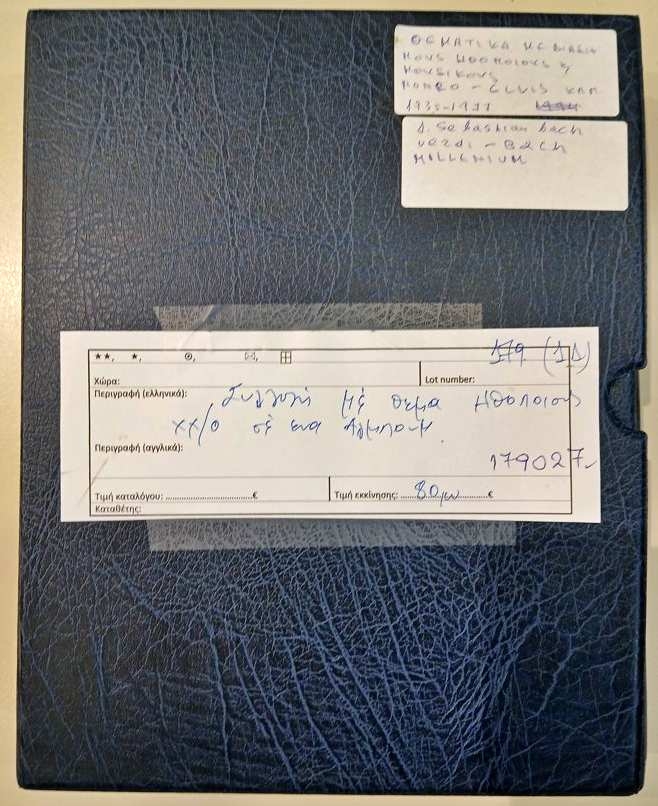 ΘΕΜΑΤΙΚΑ ΜΕ
ΗΘΟΠΟΙΟΥΣ &
ΜΟΥΣΙΚΟΥΣ
ELVIS
1935-1977
J. Sebastian bach
verdi - Bach
MILLENIUM
★★, ★,
179 (1Δ)
Χώρα: Lot number:
Περιγραφή (ελληνικά): Συλλογή μέ θεμα Ηθοποιους
xx/o σέ ενα Αλμπουμ.
Περιγραφή (αγγλικά):
179027
Τιμή καταλόγου: ......................................€ Τιμή εκκίνησης: ......80,......€
Καταθέτης: